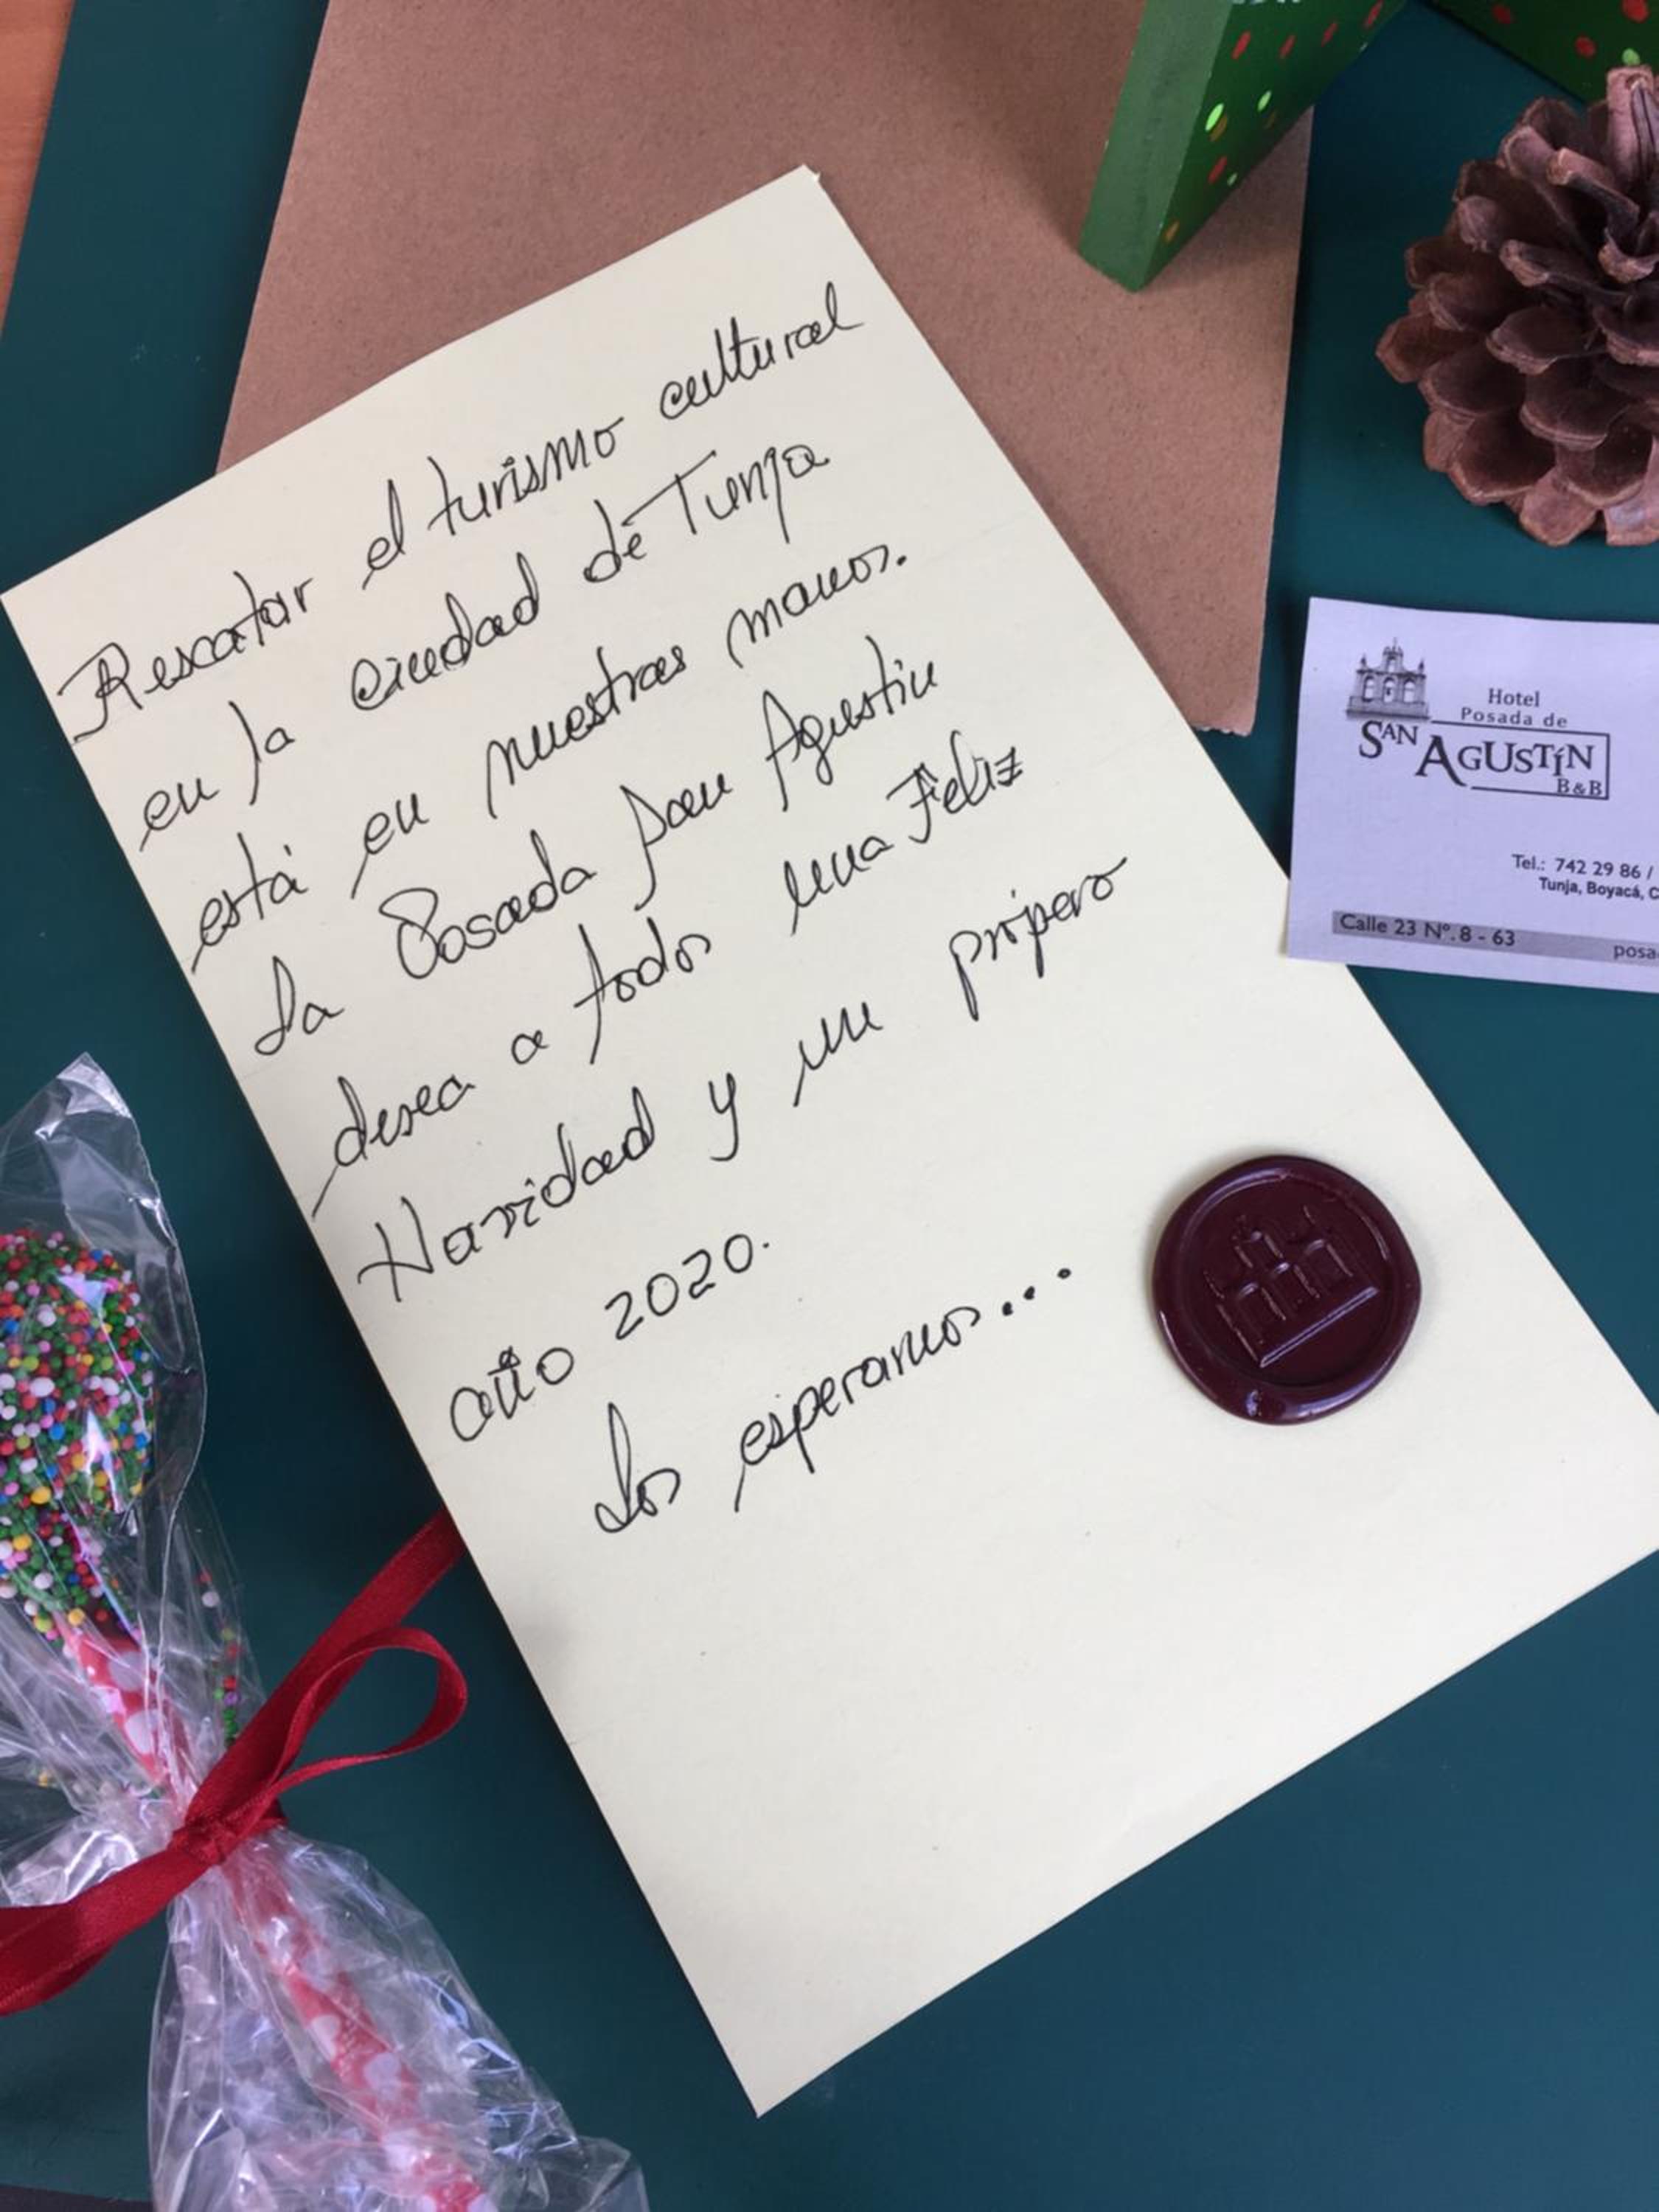 Rescatar el turismo cultural
en la ciudad de Tunja
está en nuestras manos.
La Posada San Agustin
desea a todos una Feliz
Navidad y un própero
año 2020.
Los esperamos...
Hotel
Posada de
SAN AGUSTíN
B&B
Tel.: 742 29 86 /
Tunja, Boyacá, C
Calle 23 Nº. 8 - 63
posa